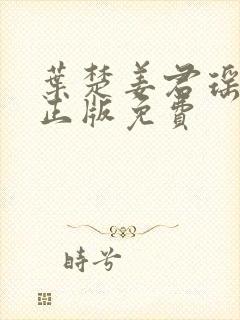 葉楚姜君瑶
正版免費
時兮